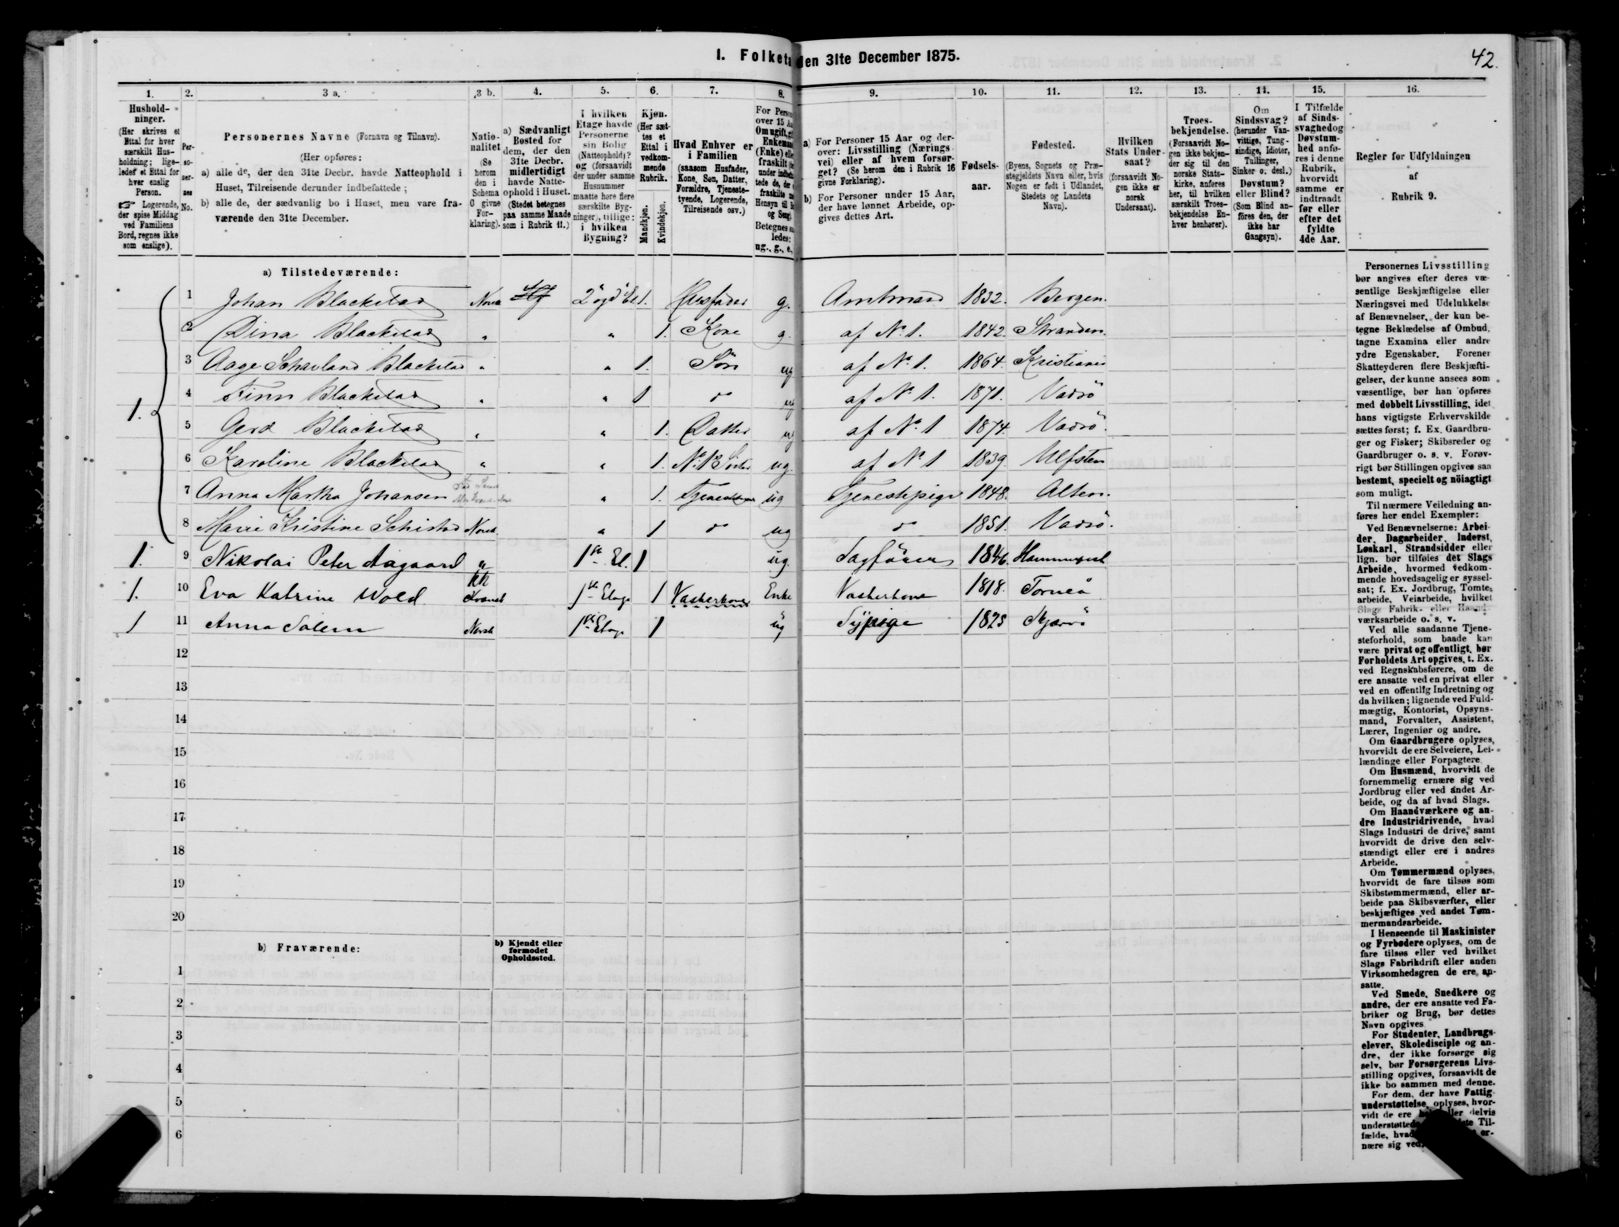 I. Folketæ den 31te December 1875.
42.
1. 2. 3 a. 3 b. 4. 5. 6. 7. 8. 9. 10. 11. 12. 13. 14. 15. 16.
Hushold-
ninger.
(Her skrives et
Ettal for hver
særskilt Hus-
holdning; lige-
ledes et Ettal for
hver enslig
Person.
☞ Logerende,
der spise Middag
ved Familiens
Bord, regnes ikke
som enslige).
Per-
so-
ner-
nes
No.
Personernes Navne (Fornavn og Tilnavn).
(Her opføres:
a) alle de, der den 31te Decbr. havde Natteophold i
Huset, Tilreisende derunder indbefattede;
b) alle de, der sædvanlig bo i Huset, men vare fra-
værende den 31ste December.
Natio-
nalitet
(Se
herom
den i
Schema
C givne
For-
klaring).
a) Sædvanligt
Bosted for
dem, der den
31te Decbr.
midlertidigt
havde Natte-
ophold i Huset.
(Stedet betegnes
paa samme Maade
som i Rubrik 11.)
I hvilken
Etage havde
Personerne
sin Bolig
(Natteophold)?
og (forsaavidt
der under samme
Husnummer
maatte høre flere
særskilte Byg-
ninger), tillige:
i hvilken
Bygning?
Kjøn.
(Her sæt-
tes et
Ettal i
vedkom-
mende
Rubrik.
Mandkjøn.
Kvindekjøn.
Hvad Enhver er
i Familien
(saasom Husfader,
Kone, Søn, Datter,
Forældre, Tjeneste-
tyende, Logerende,
Tilreisende osv.)
For Pers
over 15 A
Om ugift, g
Enkema
(Enke) elle
fraskilt
Betegnes
ledes:
ug., g., e.,
a) For Personer 15 Aar og der-
over: Livsstilling (Nærings-
vei) eller af hvem forsør-
get? (Se herom den i Rubrik 16
givne Forklaring).
b) For Personer under 15 Aar,
der have lønnet Arbeide, op-
gives dettes Art.
Fødsels-
aar.
Fødested.
(Byens, Sognets og Præ-
stegjeldets Navn eller, hvis
Nogen er født i Udlandet,
Stedets og Landets
Navn).
Hvilken
Stats Under-
saat?
(forsaavidt No-
gen ikke er
norsk
Undersaat).
Troes-
bekjendelse.
(Forsaavidt No-
gen ikke bekjen-
der sig til den
norske Stats-
kirke, anføres
her, til hvilken
særskilt Troes-
bekjendelse En-
hver henhører).
Om
Sindssvag?
(herunder Van-
vittige, Tung-
sindige, Idioter,
Tullinger,
Sinker o. desl.)
Døvstum?
eller Blind?
(Som Blind an-
føres den, der
ikke har
Gangsyn).
I Tilfælde
af Sinds-
svaghed og
Døvstum-
hed anfø-
res i denne
Rubrik,
hvorvidt
samme er
indtraadt
før eller
efter det
fyldte
4de Aar.
Regler for Udfyldningen
af
Rubrik 9.
a) Tilstedeværende:
1 Johan Blackstad Norsk 2 og 3 Et 1. Husfader g. Amtmand 1832. Bergen.
2 Dina Blackstad " " 1. Kone g. af No 1. 1842. Stranden.
3 Aage Schavland Blackstad " " 1. Søn ug af No 1. 1864. Kristiania
4 Finn Blackstad " " 1 do ug af No 1. 1871. Vadsö
1.
5 Gerd Blackstad " " 1. Datter ug af No 1 1874. Vadsö.
6 Karoline Blackstad " " 1. No 1s Søster ug. af No 1 1839 Ulfsten
7 Anna Martha Johansen " 1. Tjenestepige ug Tjenestepige 1848. Alten.
8 Marie Kristine Norsk " 1 do ug do 1851. Vadsö.
1. 9 Nikolai Peter Aagaard " 1ste Et. 1 ug. Sagfører 1846. Hammerfest
1. 10 Eva Katrine Wold Kvænsk 1ste Etage 1 Vaskerkone Enke Vaskerkone 1818. Torneå
1 11 Anna Salem Norsk 1ste Etage 1 ug Sypige 1825 Kjervö
12
13
14
15
16
17
18
19
20
b) Fraværende:
b) Kjendt eller
formodet
Opholdssted.
1
2
3
4
5
6
Personernes Livsstilling
bør angives efter deres væ-
sentlige Beskjæftigelse eller
Næringsvei med Udelukkelse
af Benævnelser, der kun be-
tegne Beklædelse af Ombud,
tagne Examina eller andre
ydre Egenskaber. Forener
Skatteyderen flere Beskjæfti-
gelser, der kunne ansees som
væsentlige, bør han opføres
med dobbelt Livsstilling, idet
hans vigtigste Erhvervskilde
sættes først; f. Ex. Gaardbru-
ger og Fisker; Skibsreder og
Gaardbruger o. s. v. Forøv-
rigt bør Stillingen opgives saa
bestemt, specielt og nöiagtigt
som muligt.
Til nærmere Veiledning an-
føres her endel Exempler:
Ved Benævnelserne: Arbei-
der, Dagarbeider, Inderst,
Løskarl, Strandsidder eller
lign. bør tilføies det Slags
Arbeide, hvormed vedkom-
mende hovedsagelig er syssel-
sat; f. Ex. Jordbrug, Tomte-
arbeide, Veiarbeide, hvilket
Slags Fabrik- eller Haand-
værksarbeide o. s. v.
Ved alle saadanne Tjene-
steforhold, som baade kan
være privat og offentligt, bør
Forholdets Art opgives, f. Ex.
ved Regnskabsførere, om de
ere ansatte ved en privat eller
ved en offentlig Indretning og
da hvilken; lignende ved Fuld-
mægtig, Kontorist, Opsyns-
mand, Forvalter, Assistent,
Lærer, Ingeniør og andre.
Om Gaardbrugere oplyses,
hvorvidt de ere Selveiere, Lei-
lændinge eller Forpagtere.
Om Husmænd, hvorvidt de
fornemmelig ernære sig ved
Jordbrug eller ved andet Ar-
beide, og da af hvad Slags.
Om Haandværkere og an-
dre Industridrivende, hvad
Slags Industri de drive, samt
hvorvidt de drive den selv-
stændigt eller ere i andres
Arbeide.
Om Tømmermænd oplyses,
hvorvidt de fare tilsøs som
Skibstømmermænd, eller ar-
beide paa Skibsværfter, eller
beskjæftiges ved andet Tøm-
mermandsarbeide.
I Henseende til Maskinister
og Fyrbødere oplyses, om de
fare tilsøs eller ved hvilket
Slags Fabrikdrift eller anden
Virksomhedsgren de ere, an-
satte.
Ved Smede, Snedkere og
andre, der ere ansatte ved Fa-
briker og Brug, bør dettes
Navn opgives
For Studenter, Landbrugs-
elever, Skoledisciple og an-
dre, der ikke forsørge sig
selv, bør Forsørgerens Livs-
stilling opgives, forsaavidt de
ikke bo sammen med denne.
For dem, der have Fattig-
understøttelse, oplyses, hvor-
vidt de ere delvis
understøttede Til-
fælde, hvad er-
nære sig ved